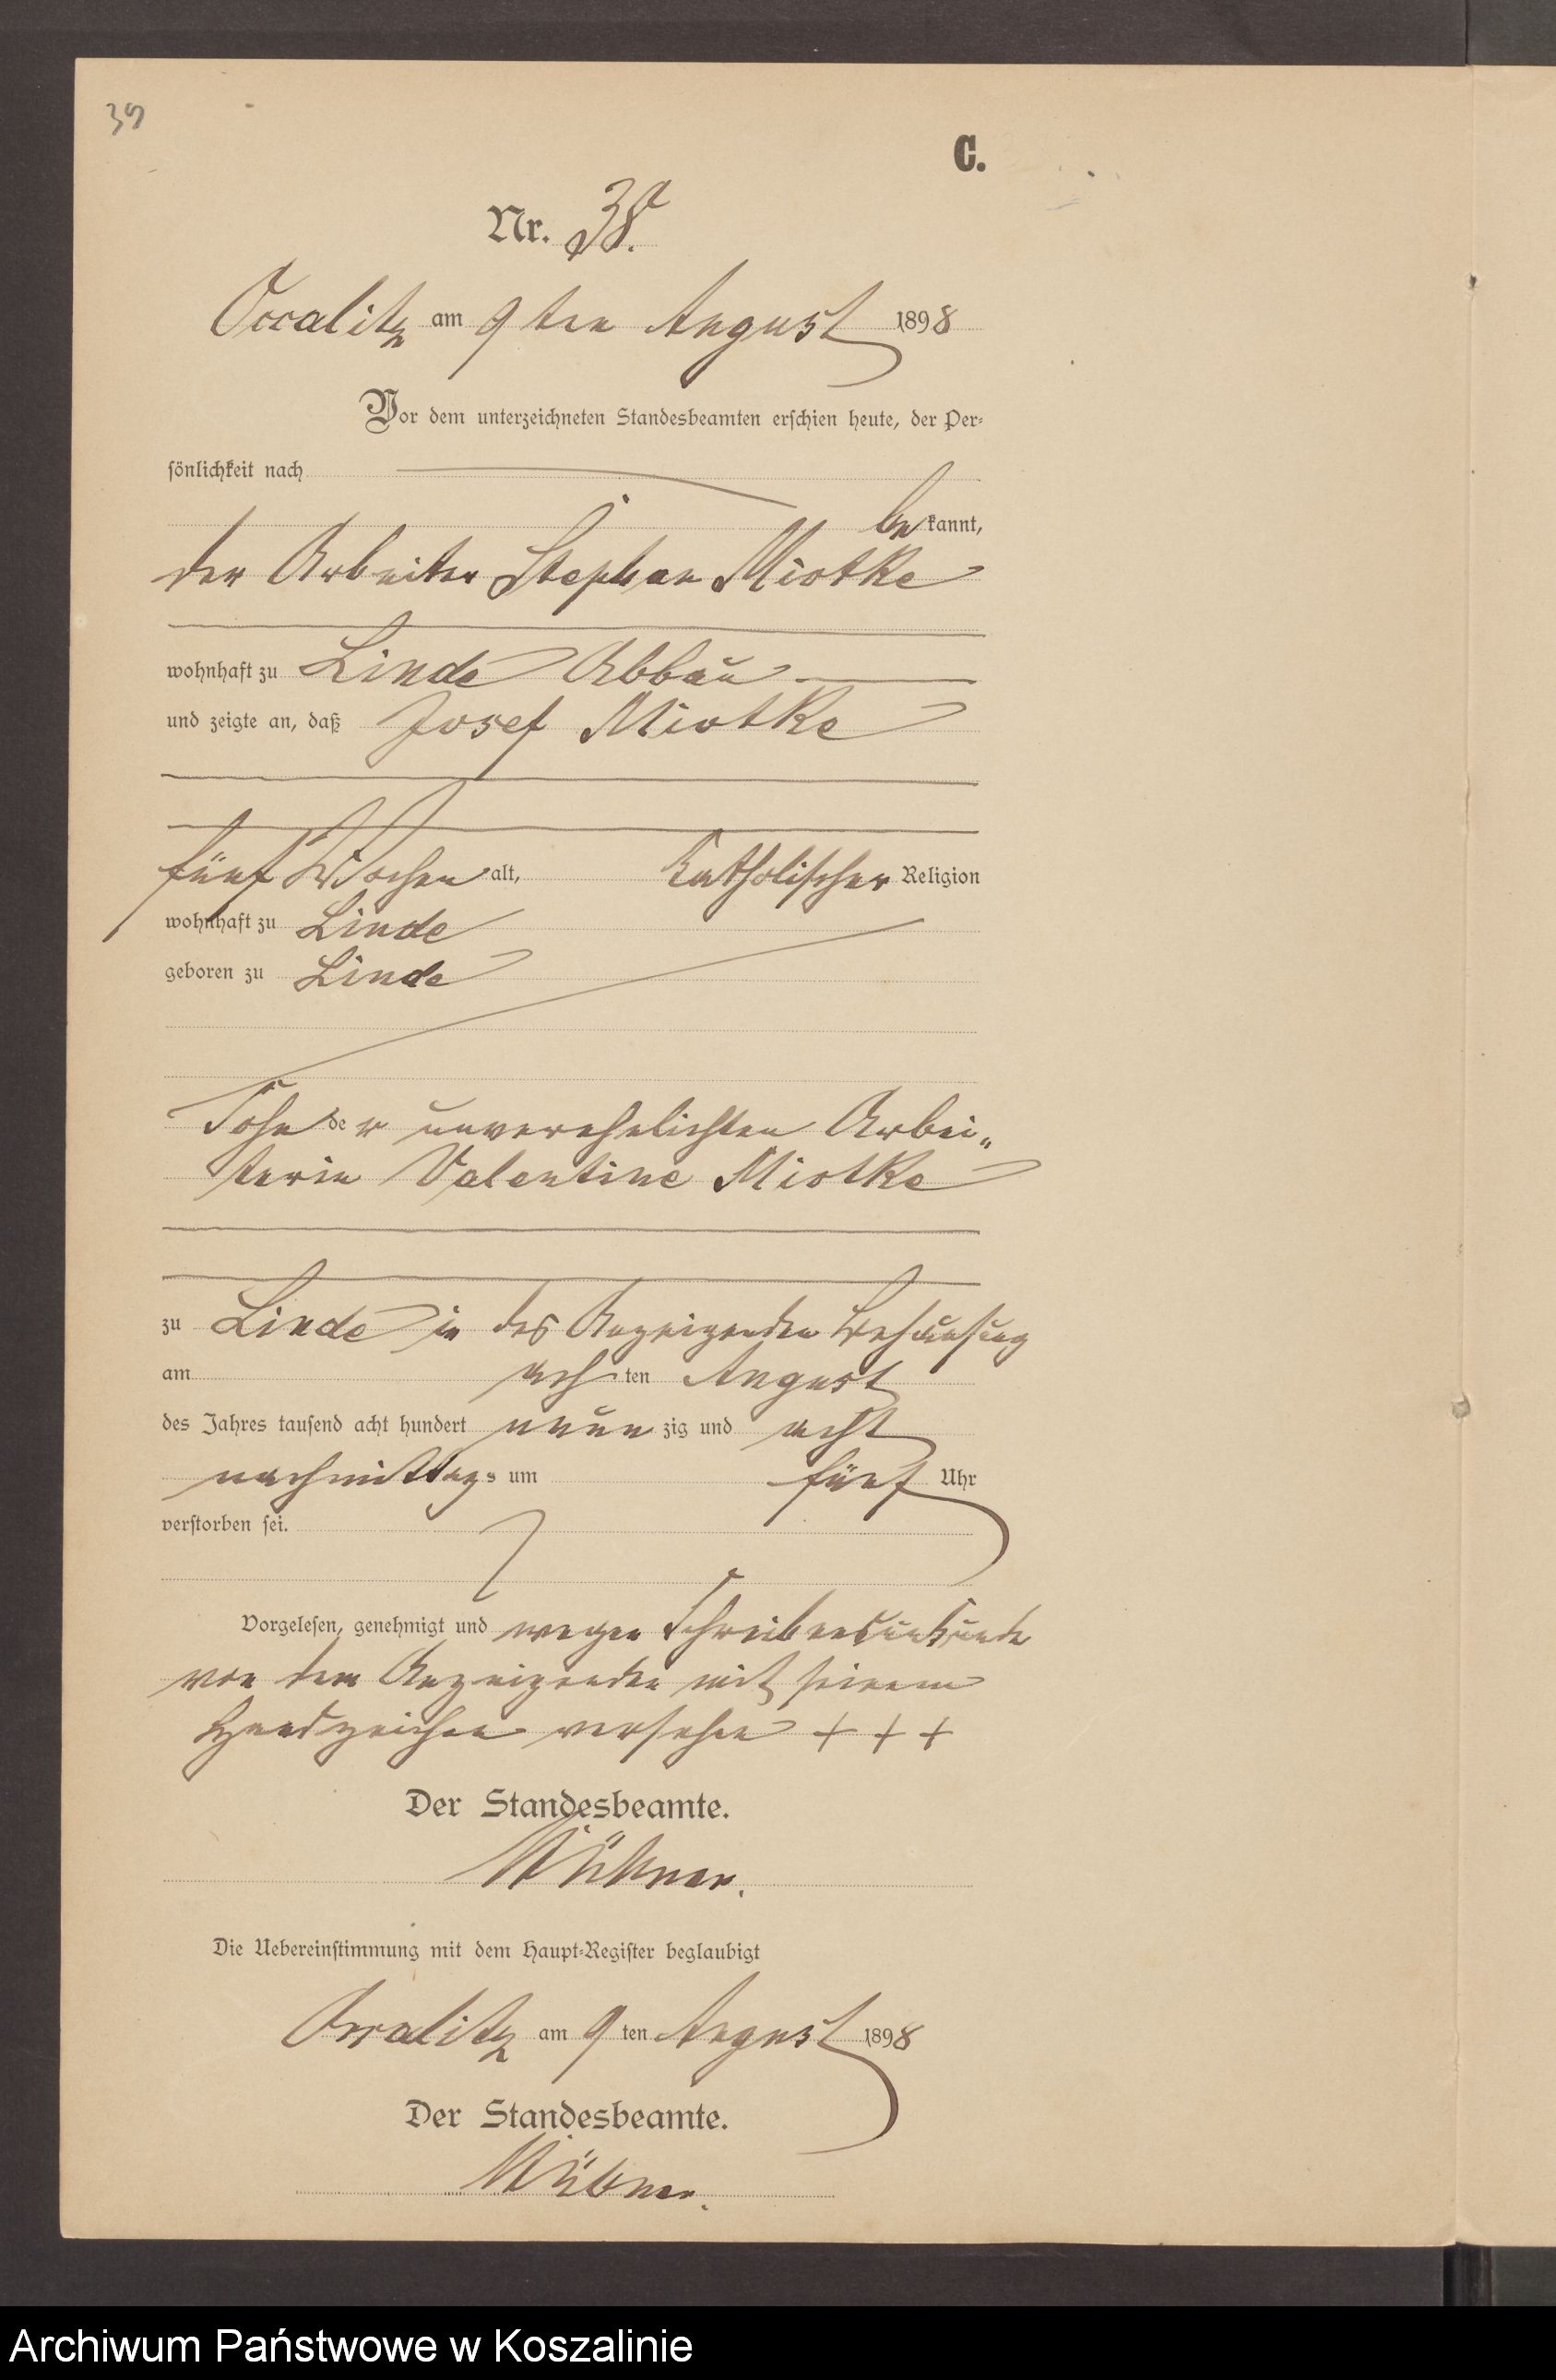 39
C.
Nr. 38.
Occalitz am 9ten August 1898
Vor dem unterzeichneten Standesbeamten erschien heute, der Per-
sönlichkeit nach
be kannt,
der Arbeiter Stephan Miotke
wohnhaft zu Linde Abbau
und zeigte an, daß Josef Miotke
fünf Wochen alt, katholischer Religion
wohnhaft zu Linde
geboren zu Linde
Sohn der unverehelichten Arbei-
terin Valentine Miotke
zu Linde in des Anzeigenden Behausung
am achten August
des Jahres tausend acht hundert neunzig und acht
nachmittags um fünf Uhr
verstorben sei.
Vorgelesen, genehmigt und wegen Schreibensunkunde
von dem Anzeigenden mit seinem
Handzeichen versehen + + +
Der Standesbeamte.
Die Uebereinstimmung mit dem Haupt-Register beglaubigt
Occalitz am 9ten August 1898
Der Standesbeamte.
Archiwum Państwowe w Koszalinie